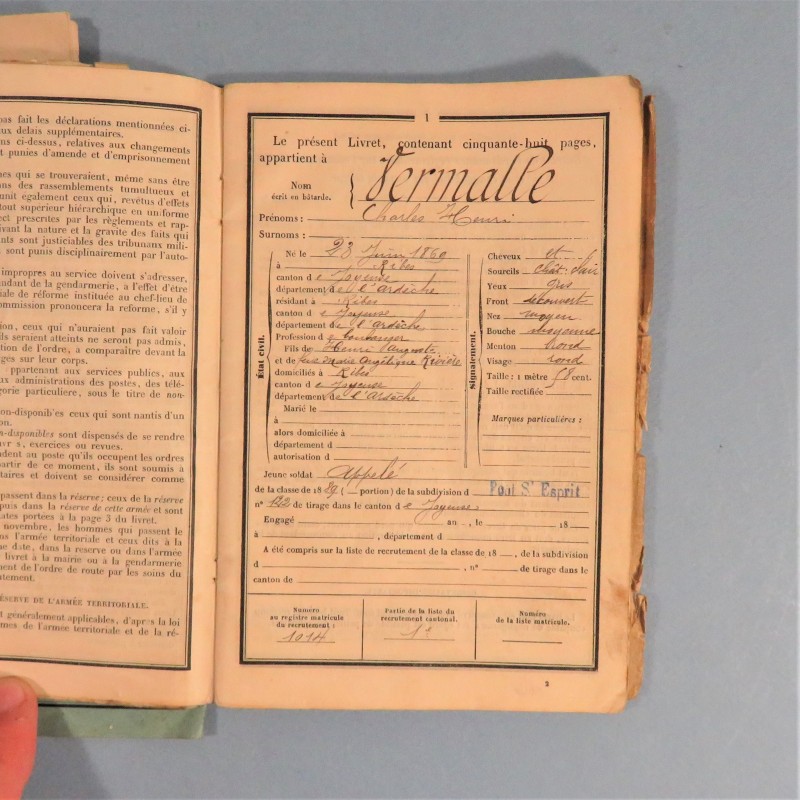 pas fait les déclarations mentionnées ci-
ux delais supplémentaires.
ns ci-dessus, relatives aux changements
t punies d'amende et d'emprisonnement
nes qui se trouveraient, même sans être
ns des rassemblements tumultueux et
unit également ceux qui, revêtus d'effets
tout supérieur hiérarchique en uniforme
ect prescrites par les règlements et rap-
ivant la nature et la gravité des faits qui
nts sont justiciables des tribunaux mili-
, sont punis disciplinairement par l'auto-
impropres au service doivent s'adresser,
ndant de la gendarmerie, a l'effet d'être
iale de réforme instituée au chef-lieu de
ommission prononcera la reforme, s'il y
ion, ceux qui n'auraient pas fait valoir
ils seraient atteints ne seront pas admis,
tion de l'ordre, à comparaître devant la
ges sur leur corps.
ppartenant aux services publics, aux
ux administrations des postes, des télé-
gorie particuliere, sous le titre de non-
on-disponibles ceux qui sont nantis d'un
on.
n-disponibles sont dispensés de se rendre
s, exercices ou revues.
ndent au poste qu'ils occupent les ordres
partir de ce moment, ils sont soumis à
taires et doivent se considérer comme
passent dans la réserve; ceux de la réserve
puis dans la réserve de cette armée et sont
ates portées à la page 3 du livret.
novembre, les hommes qui passent le
ns l'armée territoriale et ceux dits à la
ne date, dans la reserve ou dans l'armée
livret à la mairie ou à la gendarmerie
ment de l'ordre de route par les soins du
utement.
ÉSERVE DE L'ARMÉE TERRITORIALE.
t généralement applicables, d'après la loi
mes de l'armée territoriale et de la ré-
1
Le présent Livret, contenant cinquante-huit pages,
appartient à
Nom Vermalle
écrit en bâtarde.
Prénoms : Charles Henri
Surnoms :
État civil.
Né le 23 Juin 1869
à Ribes
canton de Joyeuse
département de l'ardèche
résidant à Ribes
canton de Joyeuse
département de l'ardèche
Profession de boulanger
Fils de Henri Auguste
et de Marie Angélique Rivière
domiciliés à Ribes
canton de Joyeuse
département de l'ardèche
Marié le
à
alors domiciliée à
département d
autorisation d
Signalement.
Cheveux et
Sourcils chât. clair
Yeux gris
Front découvert
Nez moyen
Bouche moyenne
Menton rond
Visage rond
Taille : 1 mètre 58 cent.
Taille rectifiée
Marques particulières :
Jeune soldat appelé
de la classe de 1889 ( portion) de la subdivision d Pont St Esprit
n° 122 de tirage dans le canton de Joyeuse
Engagé au , le 18
à , département d
A été compris sur la liste de recrutement de la classe de 18 , de la subdivision
d , n° de tirage dans le
canton de
Numéro
au registre matricule
du recrutement :
1014
Partie de la liste du
recrutement cantonal.
1e
Numéro
de la liste matricule.
2